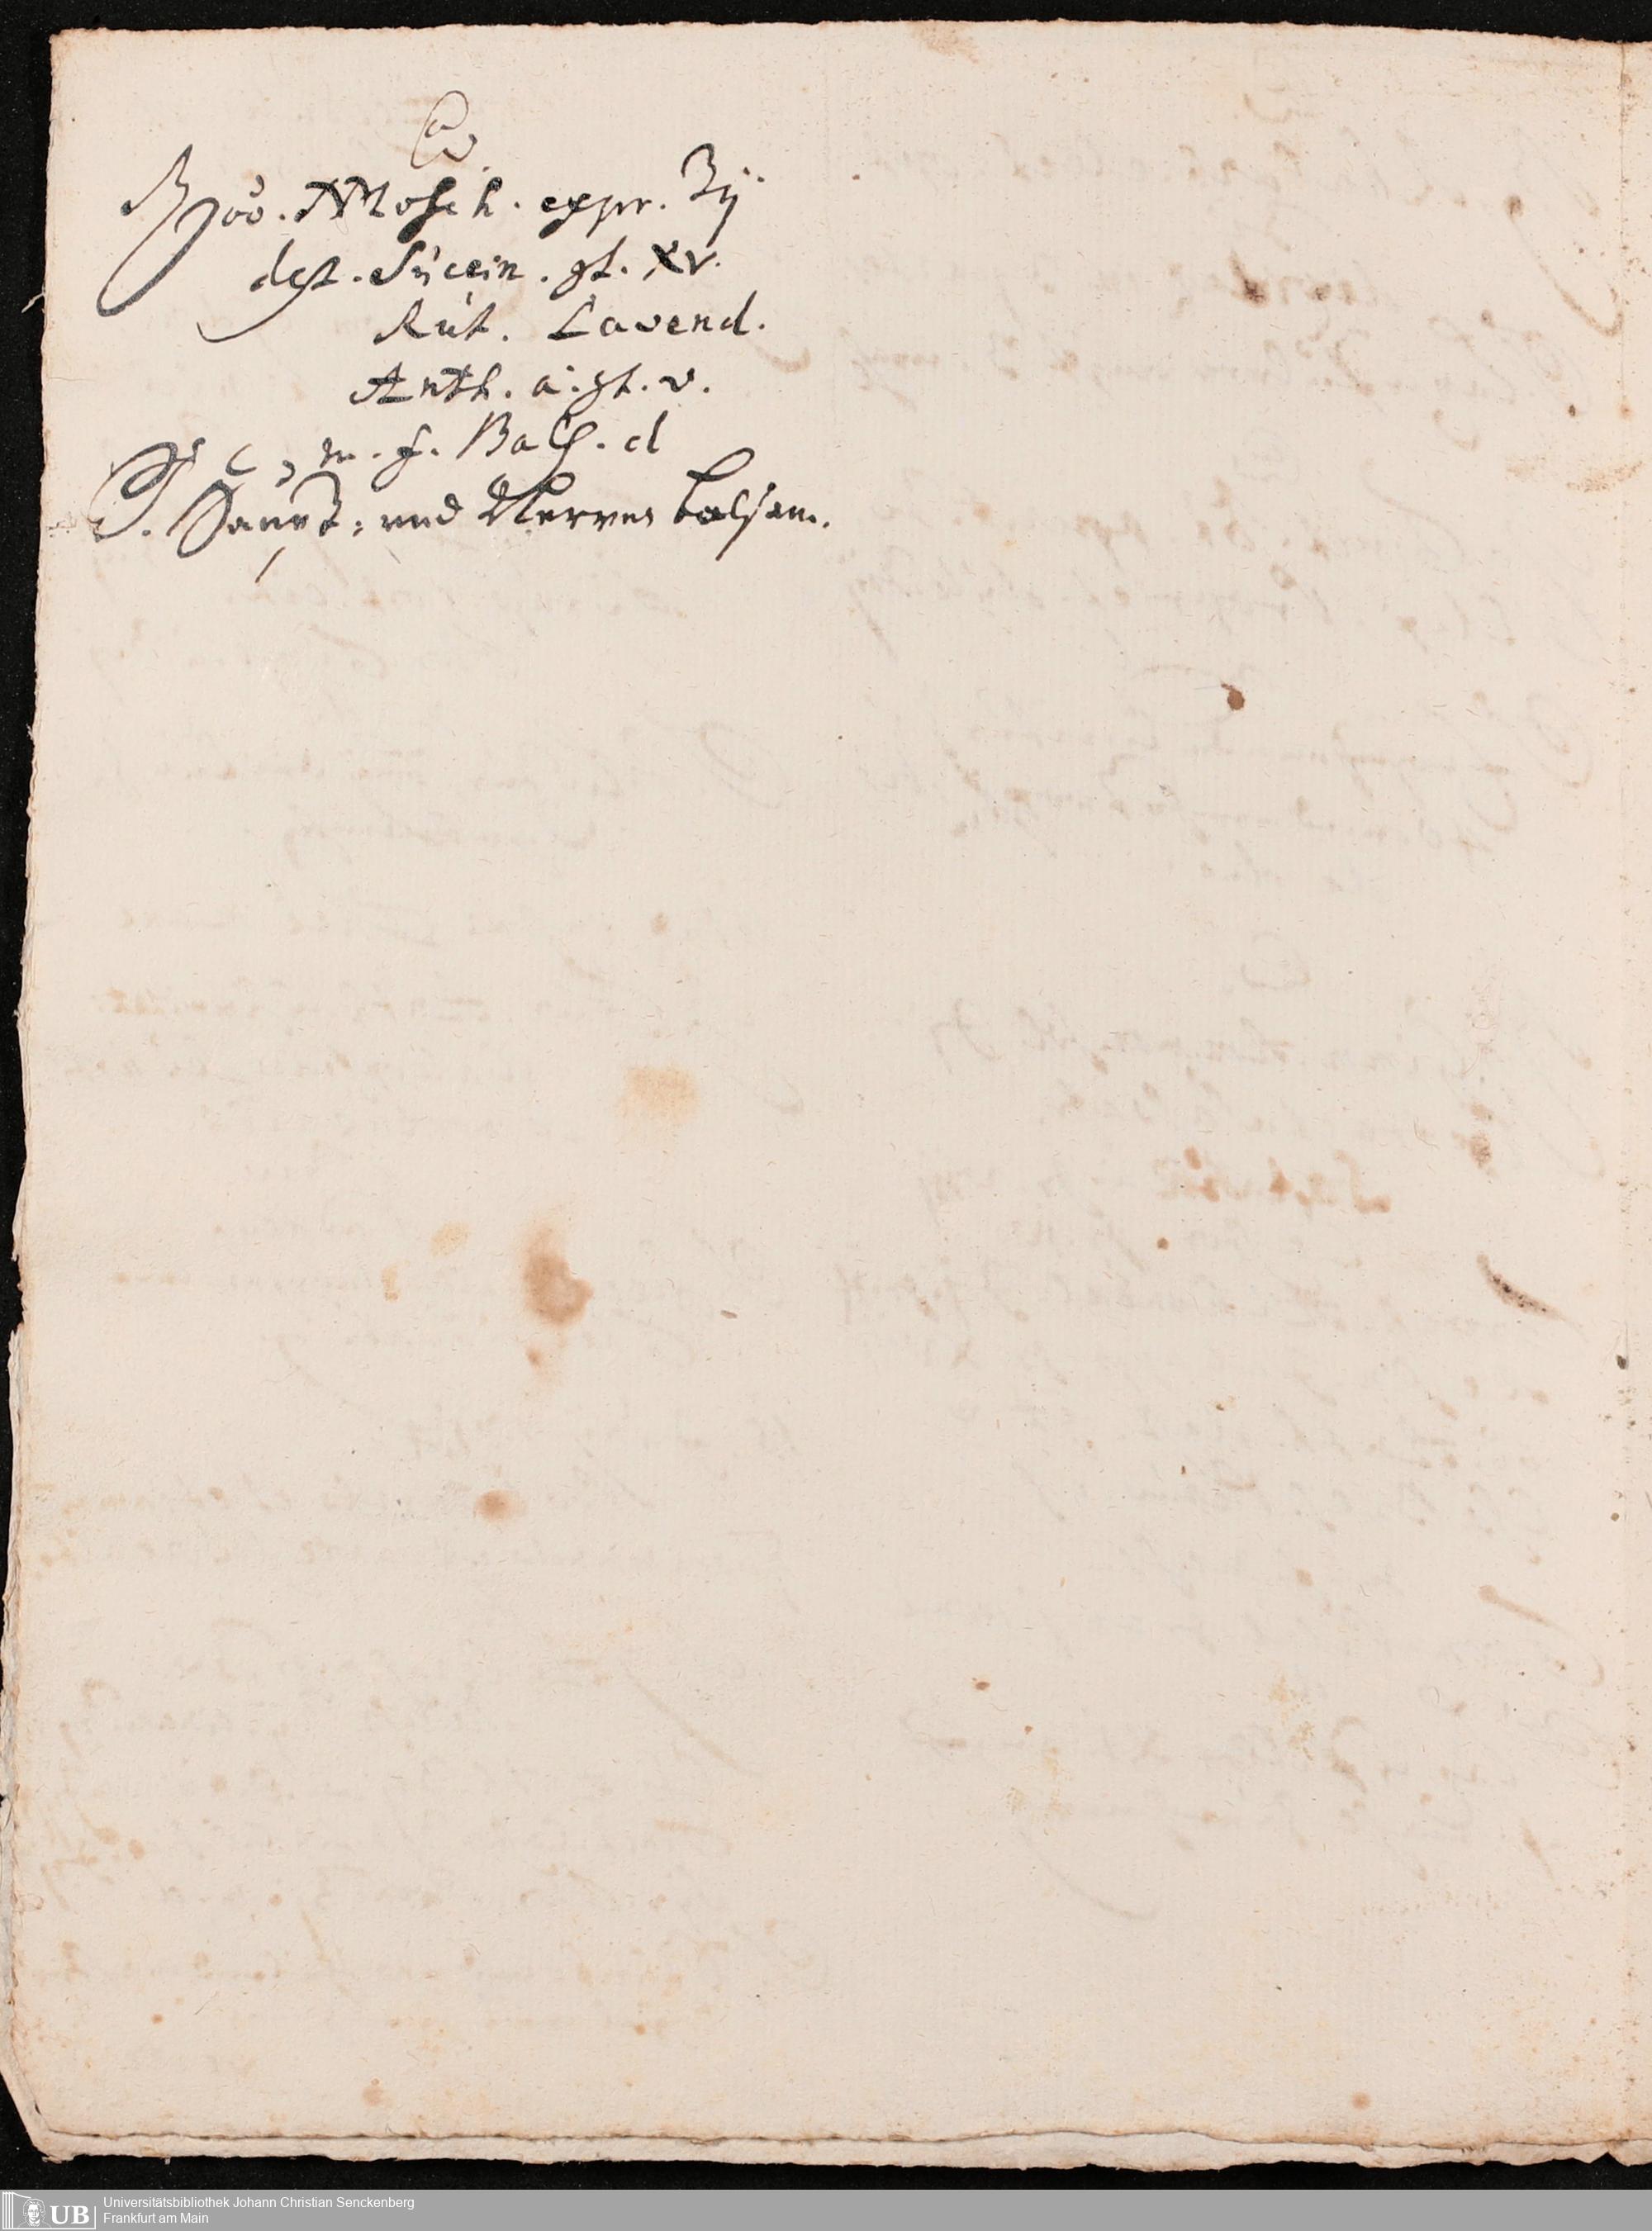 ℞ oo. N Mosch. expr. ʒij
dest. Succin. gt. XV.
Rut. Lavend.
Anth. a. gt. v.
m. f. Bals. d
S. Haupt- und Nerven balsam.
Universitätsbibliothek Johann Christian Senckenberg
Frankfurt am Main
UB